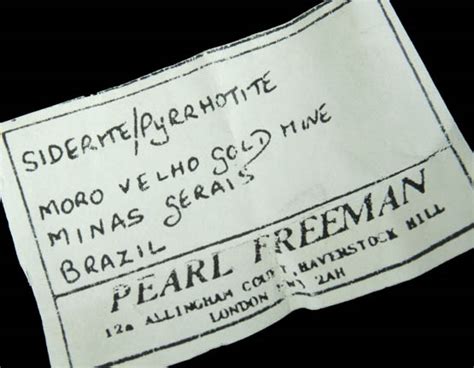 SIDERITE/PYRRHOTITE
MORO VELHO GOLD MINE
MINAS GERAIS
BRAZIL
PEARL FREEMAN
12a ALLINGHAM COURT, HAVERSTOCK HILL
LONDON 2AH